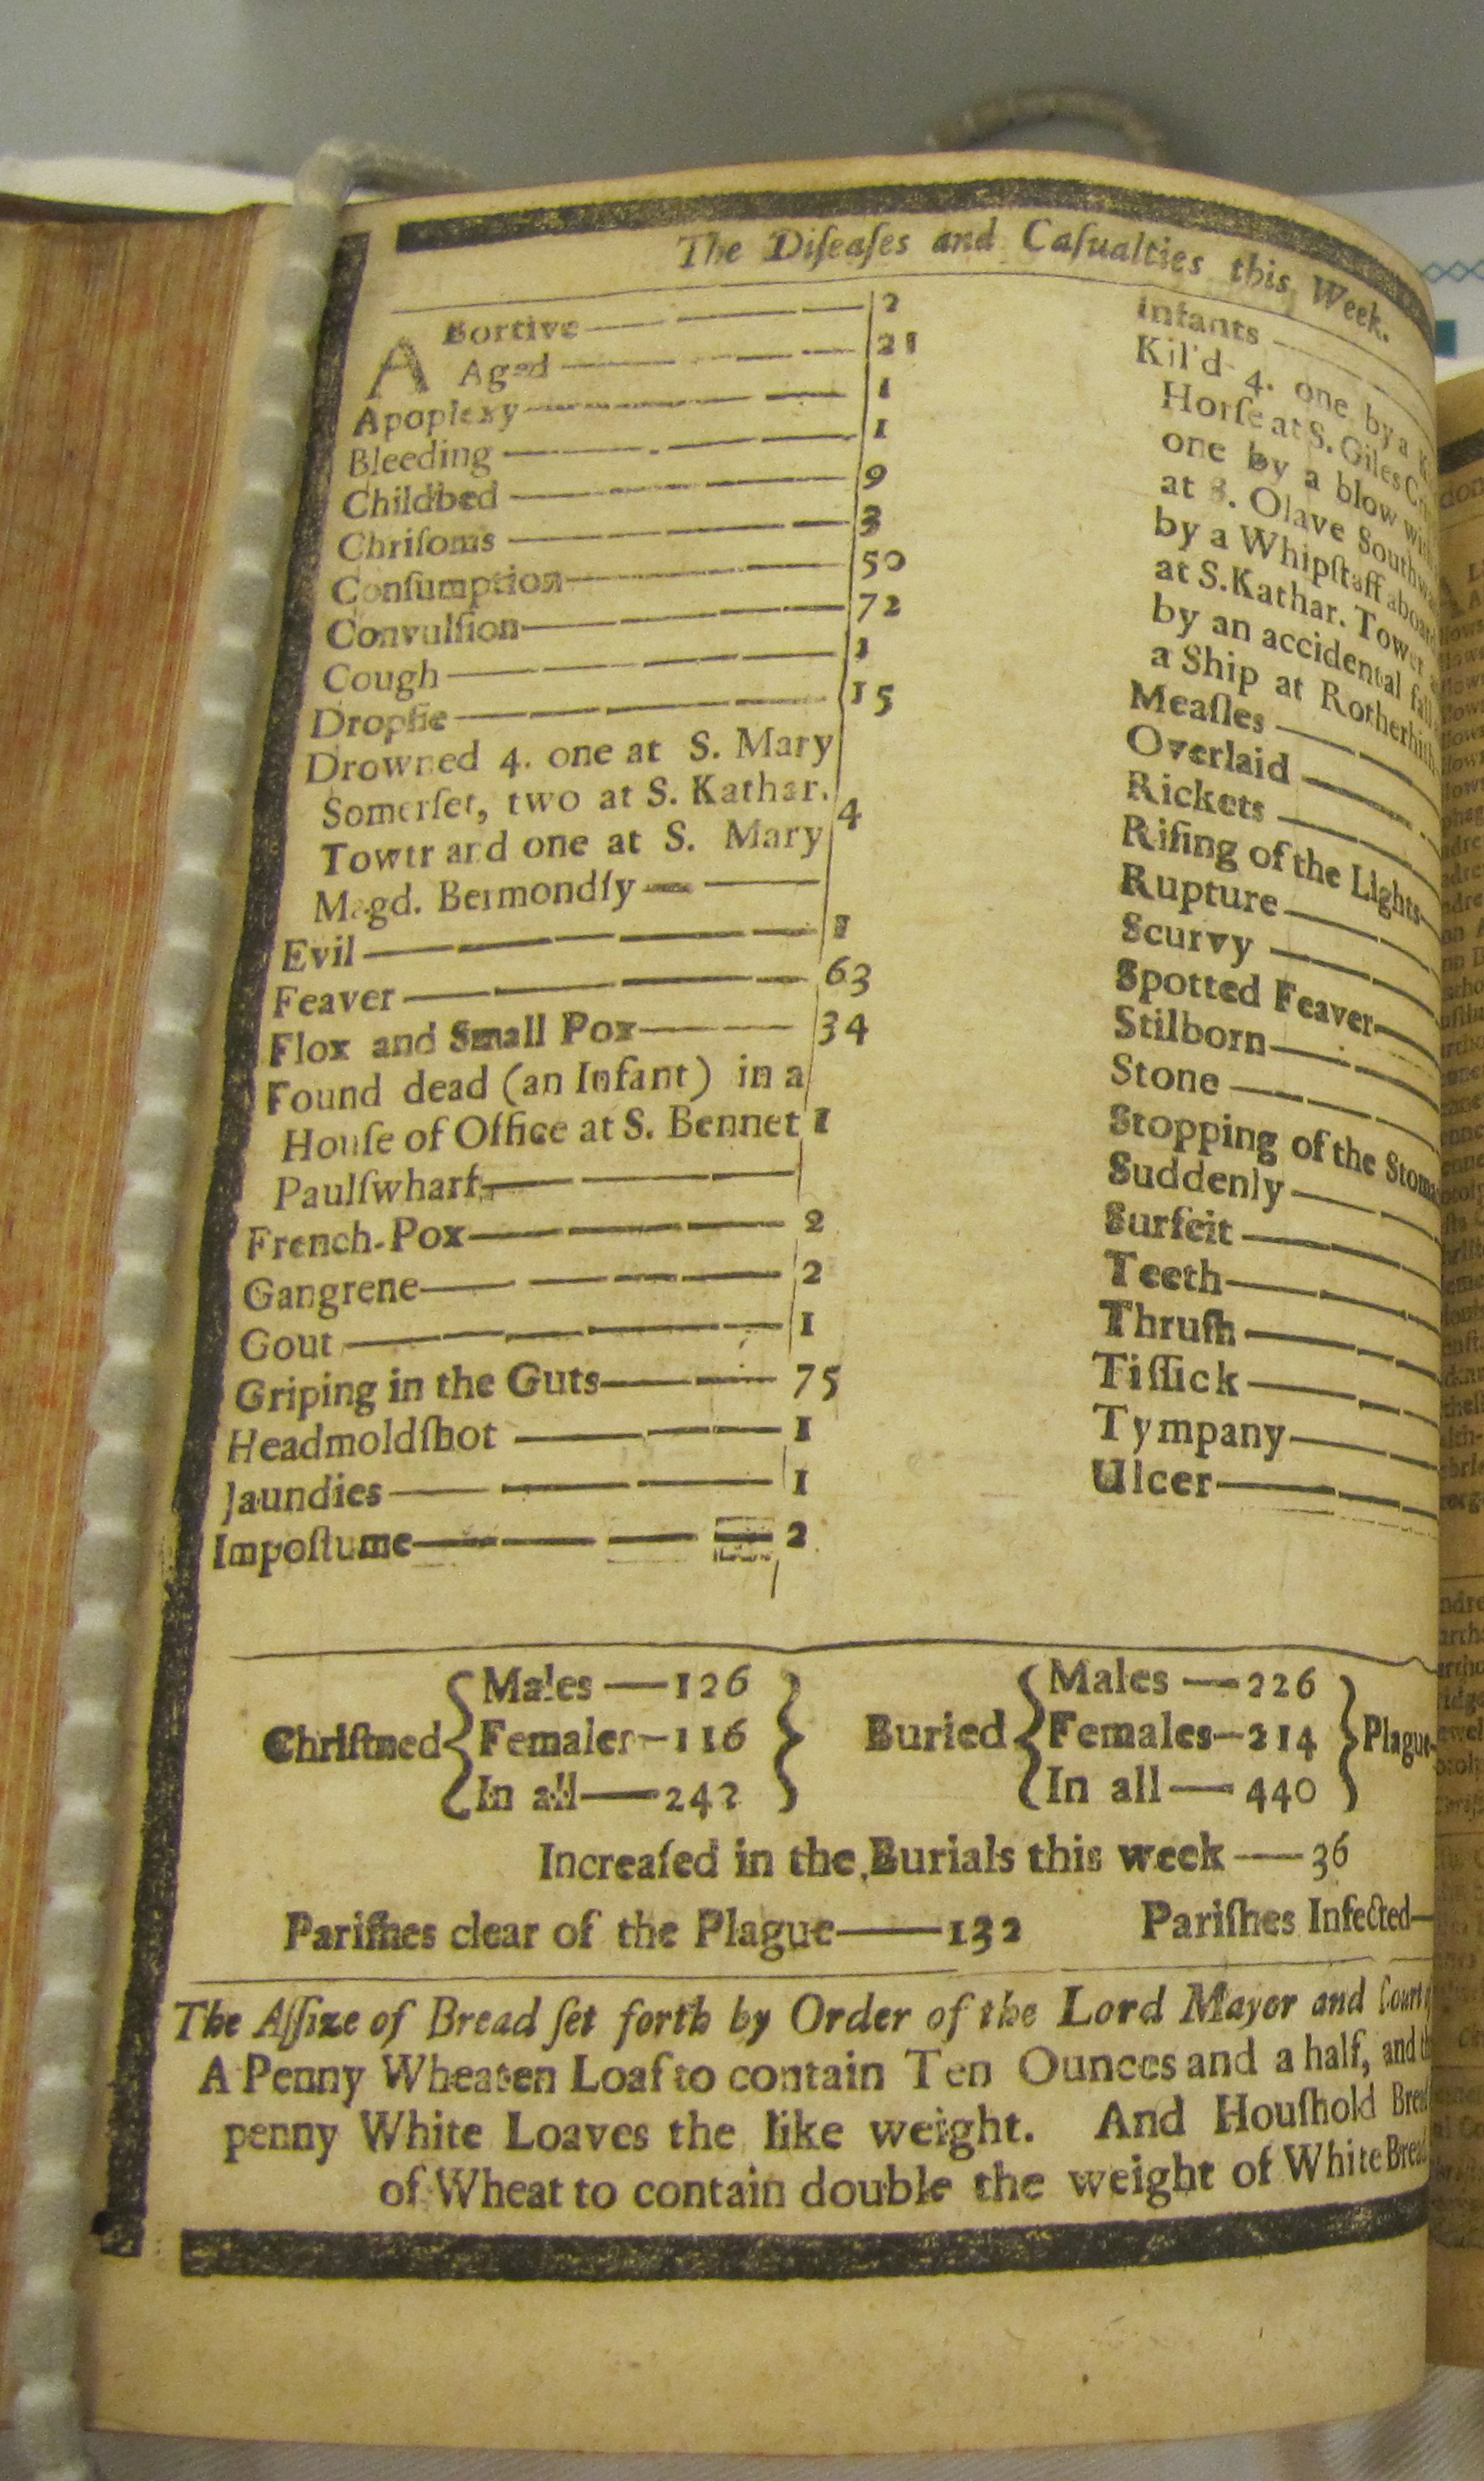 The Diſeaſes and Caſualties this Week.
ABortive 2
Aged 21
Apoplexy 1
Bleeding 1
Childbed 9
Chriſoms 3
Conſumption 50
Convulſion 72
Cough 1
Dropſie 15
Drowned 4. one at S. Mary
Somerſet, two at S. Kathar.
Towtr and one at S. Mary 4
Magd. Bermondſy
Evil 1
Feaver 63
Flox and Small Pox 34
Found dead (an Infant) in a
Houſe of Office at S. Bennet 1
Paulſwharf
French-Pox 2
Gangrene 2
Gout 1
Griping in the Guts 75
Headmoldſhot 1
Jaundies 1
Impoſtume 2
Infants
Kil'd 4. one by a
Horſe at S. Giles
one by a blow
at S. Olave
by a Whipſtaff
at S. Kathar. Tower
by an accidental fall
a Ship at
Meaſles
Overlaid
Rickets
Riſing of the Lights
Rupture
Scurvy
Spotted Feaver
Stilborn
Stone
Stopping of the
Suddenly
Surfeit
Teeth
Thruſh
Tiſſick
Tympany
Ulcer
Chriſtned { Males — 126 } Buried { Males — 226 } Plague
Females — 116 Females — 214
In all — 242 In all — 440
Increaſed in the Burials this week — 36
Pariſhes clear of the Plague — 132 Pariſhes Infected —
The Aſſize of Bread ſet forth by Order of the Lord Mayor and Court
A Penny Wheaten Loaf to contain Ten Ounces and a half, and
penny White Loaves the like weight. And Houſhold
of Wheat to contain double the weight of White